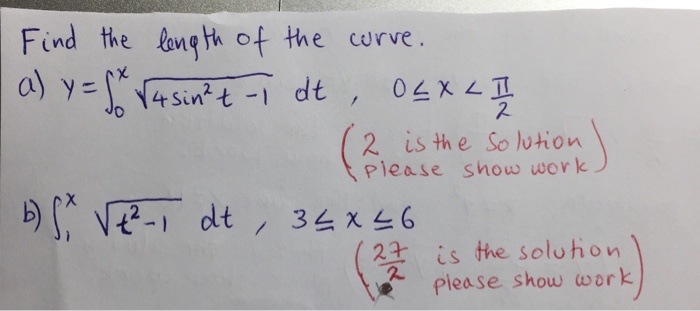 Find the length of the curve.
a) y = ∫₀ˣ √(4 sin² t - 1) dt , 0 ≤ x < π/2
(2 is the solution
please show work)
b) ∫₁ˣ √(t² - 1) dt , 3 ≤ x ≤ 6
(27/2 is the solution
please show work)